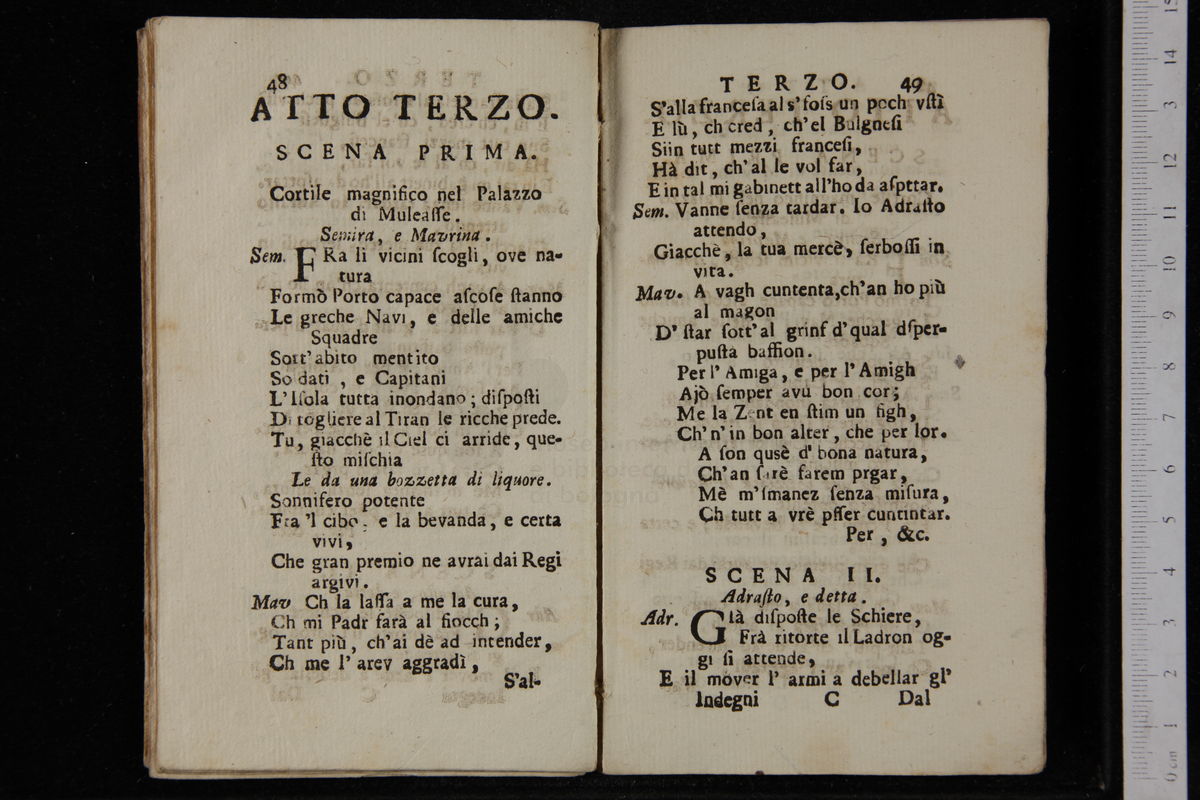 48
ATTO TERZO.
SCENA PRIMA.
Cortile magnifico nel Palazzo
di Muleaſſe.
Semira, e Maurina.
Sem. FRa li vicini ſcogli, ove na-
tura
Formò Porto capace aſcoſe ſtanno
Le greche Navi, e delle amiche
Squadre
Sott' abito mentito
So dati , e Capitani
L' Iſola tutta inondano ; diſpoſti
Di togliere al Tiran le ricche prede.
Tu, giacchè il Ciel ci arride, que-
ſto miſchia
Le da una bozzetta di liquore.
Sonnifero potente
Fra 'l cibo, e la bevanda, e certa
vivi,
Che gran premio ne avrai dai Regi
argivi.
Mav Ch la laſſa a me la cura,
Ch mi Padr farà al fiocch ;
Tant più, ch'ai dè ad intender,
Ch me l' arev aggradì ,
S'al-
TERZO. 49
S'alla franceſa al s' foſs un poch vſtì
E lù, ch cred , ch'el Bulgneſi
Siin tutt mezzi franceſi,
Hà dit, ch' al le vol far,
E in tal mi gabinett all'ho da aſpttar.
Sem. Vanne ſenza tardar. Io Adraſto
attendo,
Giacchè, la tua mercè, ſerboſſi in
vita.
Mav. A vagh cuntenta, ch'an ho più
al magon
D' ſtar ſott' al grinf d' qual dſper-
puſtà baffion.
Per l' Amiga, e per l' Amigh
Ajò ſemper avu bon cor;
Me la Zent en ſtim un figh,
Ch' n' in bon alter, che per lor.
A ſon qusè d' bona natura,
Ch' an ſarè farem prgar,
Mè m' ſmanez ſenza miſura,
Ch tutt a vrè pſſer cuntintar.
Per , &c.
SCENA II.
Adraſto, e detta.
Adr. Già diſpoſte le Schiere,
Frà ritorte il Ladron og-
gi ſi attende,
E il mover l' armi a debellar gl'
Indegni C Dal